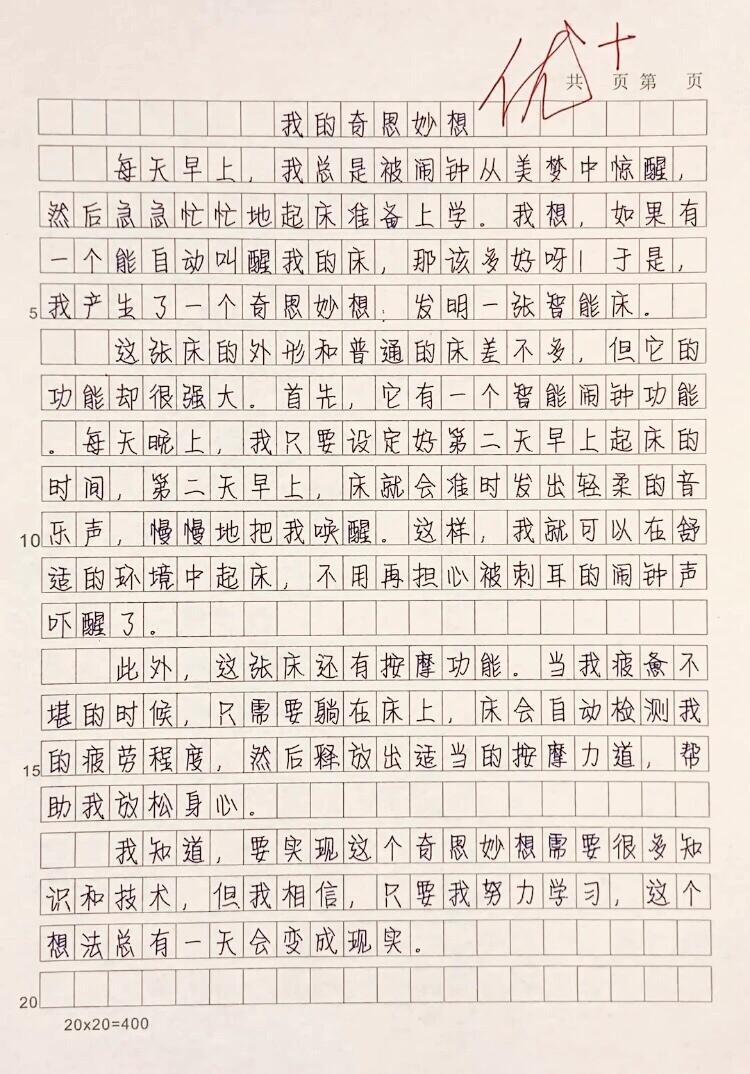 优+
共 页 第 页
我的奇思妙想
每天早上，我总是被闹钟从美梦中惊醒，
然后急急忙忙地起床准备上学。我想，如果有
一个能自动叫醒我的床，那该多好呀！于是，
5 我产生了一个奇思妙想：发明一张智能床。
这张床的外形和普通的床差不多，但它的
功能却很强大。首先，它有一个智能闹钟功能
。每天晚上，我只要设定好第二天早上起床的
时间，第二天早上，床就会准时发出轻柔的音
10 乐声，慢慢地把我唤醒。这样，我就可以在舒
适的环境中起床，不用再担心被刺耳的闹钟声
吓醒了。
此外，这张床还有按摩功能。当我疲惫不
堪的时候，只需要躺在床上，床会自动检测我
15 的疲劳程度，然后释放出适当的按摩力道，帮
助我放松身心。
我知道，要实现这个奇思妙想需要很多知
识和技术，但我相信，只要我努力学习，这个
想法总有一天会变成现实。
20
20x20=400